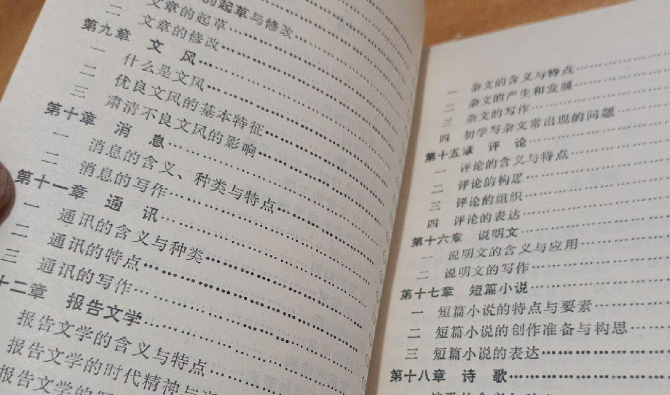 的起草与修改
二 文章的起草
三 文章的修改
第九章 文风
一 什么是文风
二 优良文风的基本特征
三 肃清不良文风的影响
第十章 消息
一 消息的含义、种类与特点
二 消息的写作
第十一章 通讯
一 通讯的含义与种类
二 通讯的特点
三 通讯的写作
十二章 报告文学
报告文学的含义与特点
报告文学的时代精神与
报告文学的写
一 杂文的含义与特点
二 杂文的产生和发展
三 杂文的写作
四 初学写杂文常出现的问题
第十五章 评论
一 评论的含义与特点
二 评论的构思
三 评论的组织
四 评论的表达
第十六章 说明文
一 说明文的含义与应用
二 说明文的写作
第十七章 短篇小说
一 短篇小说的特点与要素
二 短篇小说的创作准备与构思
三 短篇小说的表达
第十八章 诗歌